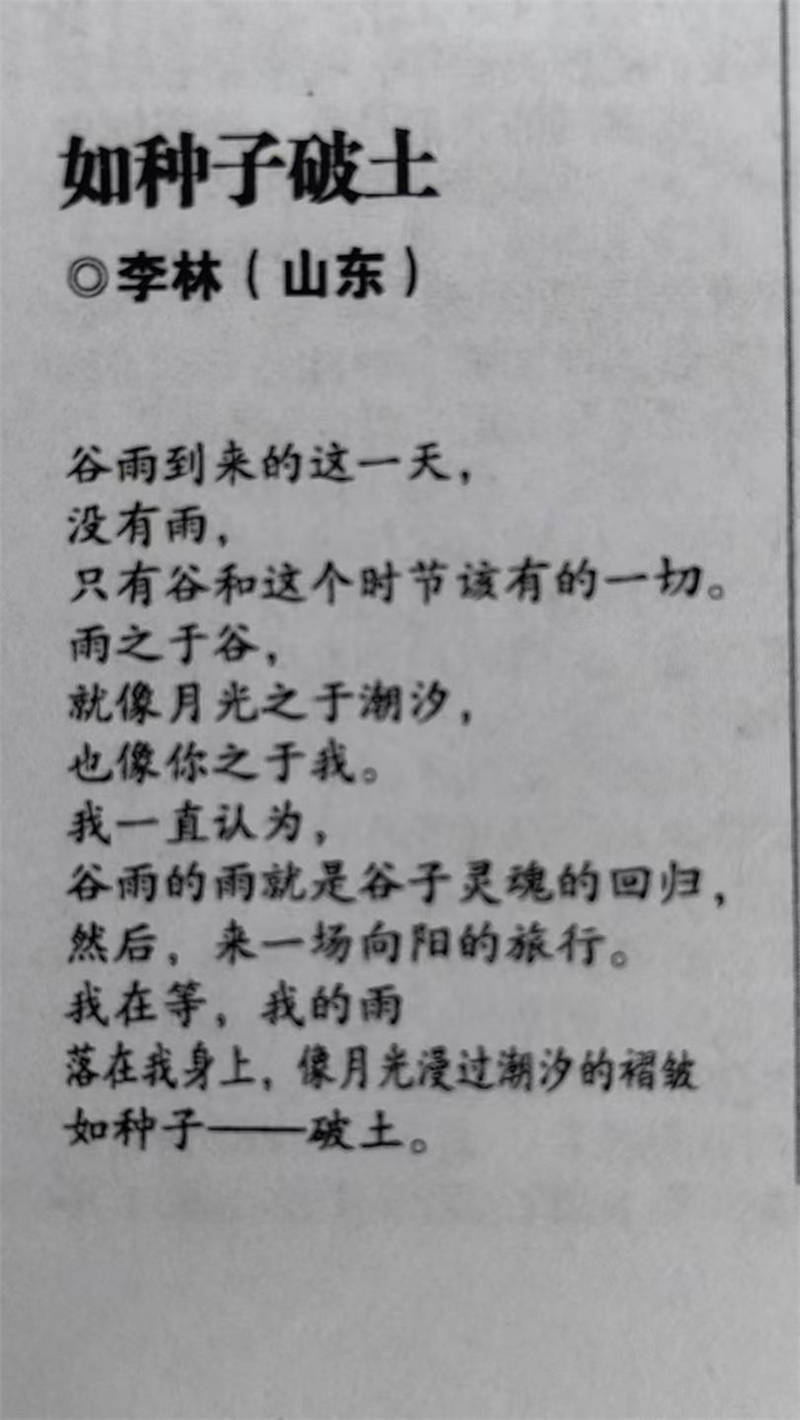 如种子破土
◎李林（山东）
谷雨到来的这一天，
没有雨，
只有谷和这个时节该有的一切。
雨之于谷，
就像月光之于潮汐，
也像你之于我。
我一直认为，
谷雨的雨就是谷子灵魂的回归，
然后，来一场向阳的旅行。
我在等，我的雨
落在我身上，像月光漫过潮汐的褶皱
如种子——破土。